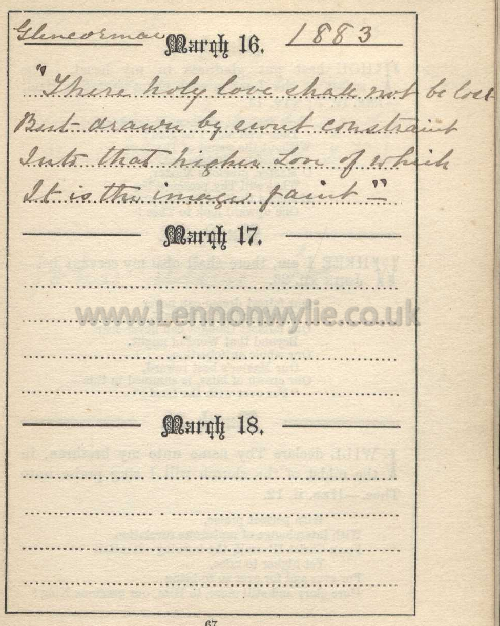 Glencormac March 16. 1883
"There holy love shall not be lost
But drawn by sweet constraint
Into that higher Love of which
It is the image faint"
March 17.
www.Lennonwylie.co.uk
March 18.
67